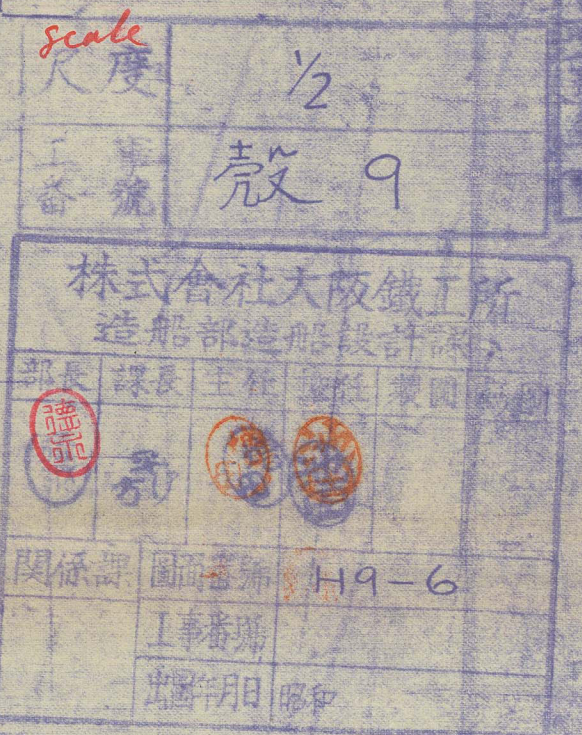 scale
尺度 1/2
工事番號 殻 9
株式會社大阪鐵工所
造船部造船設計課
部長 課長 主任 担任 製圖
関係課 圖面番號 H9-6
工事番號
出圖年月日 昭和